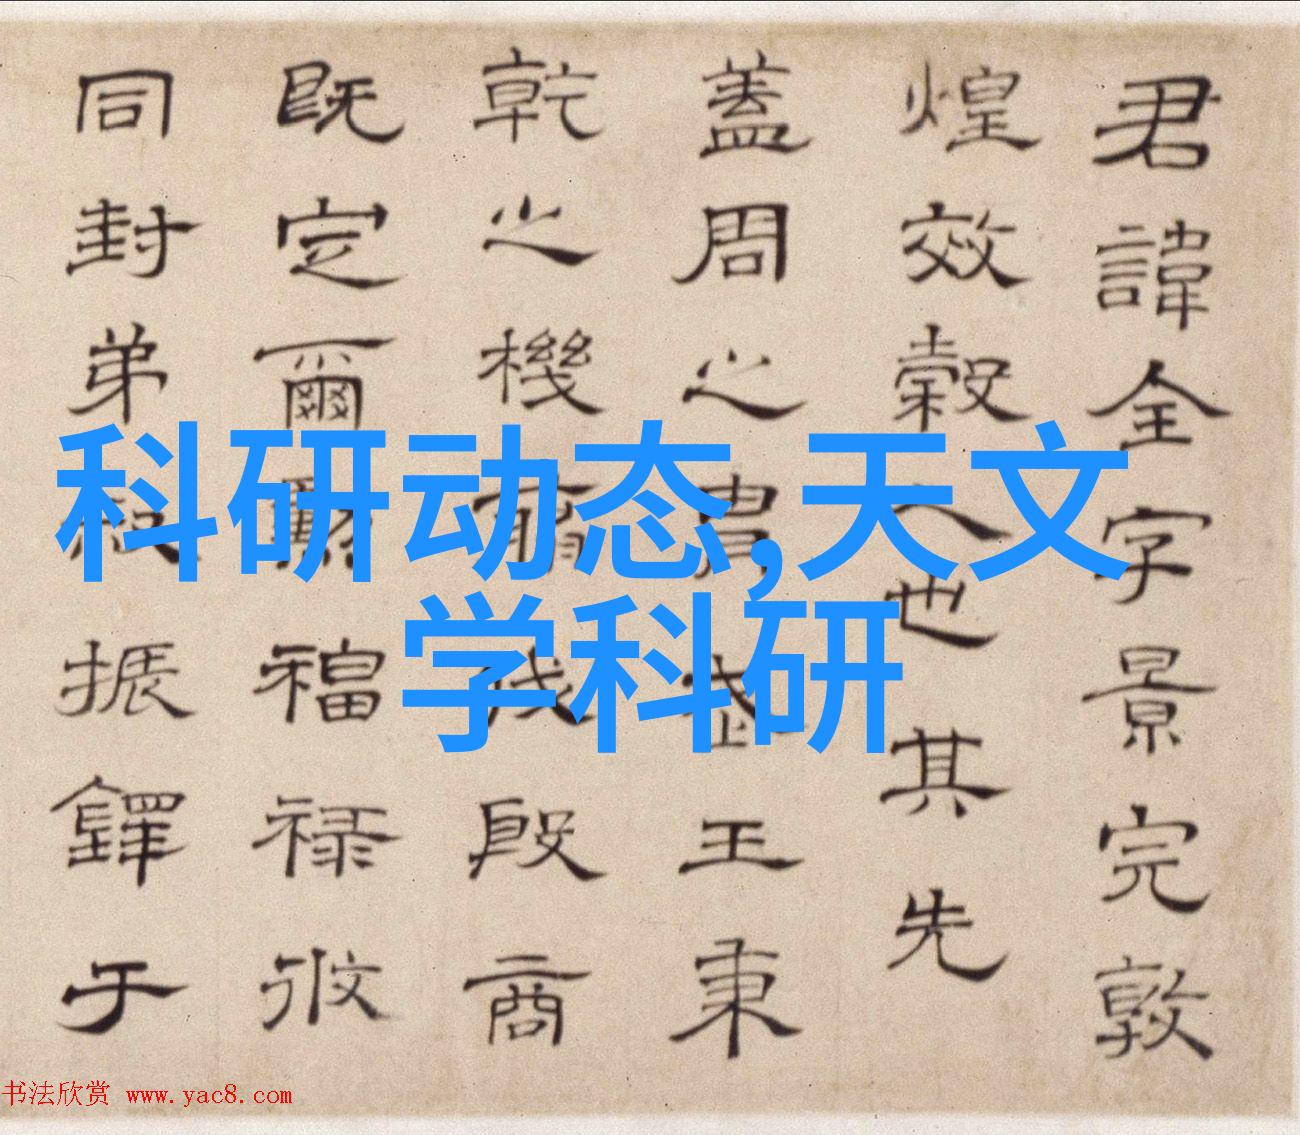 君諱全字景完敦
煌效穀人也其先
蓋周之胄武王秉
乾之機翦伐殷商
既定爾勳福祿攸
同封弟叔振鐸于
科研动态,天文
学科研
书法欣赏 www.yac8.com